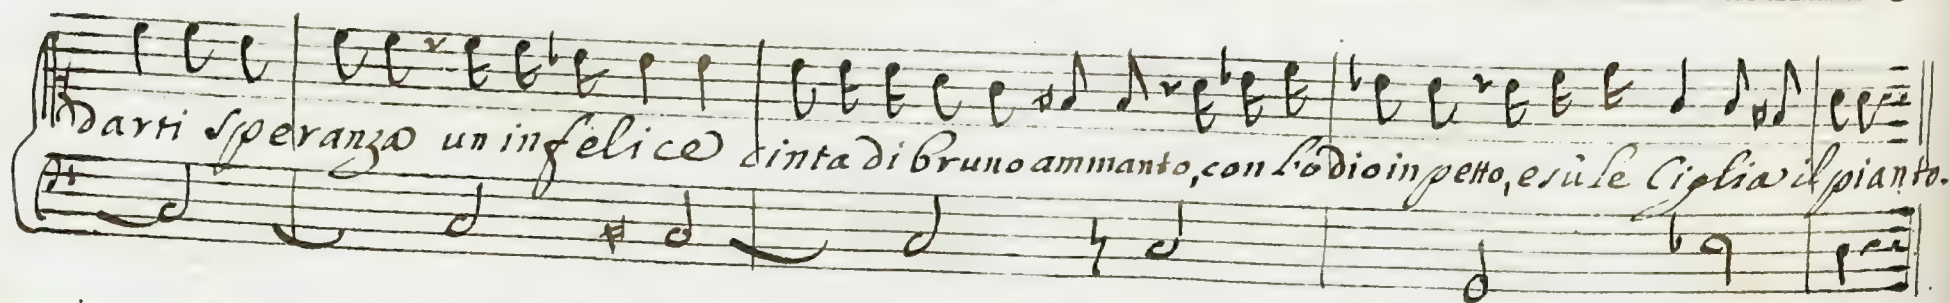 darti speranza un infelice cinta di bruno ammanto, con l'ódio in petto, e sù le Ciglia il pianto.